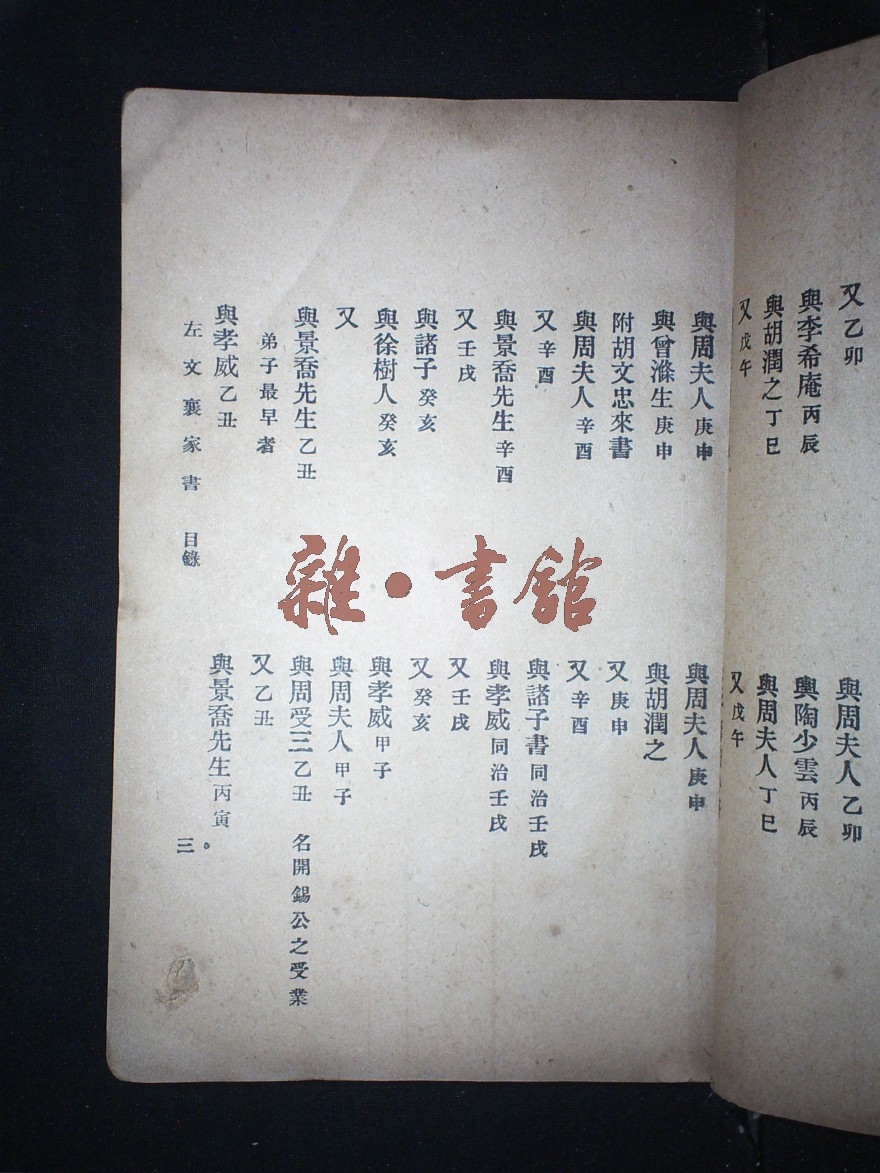 又 乙卯
與周夫人 乙卯
與李希庵 丙辰
與陶少雲 丙辰
與胡潤之 丁巳
與周夫人 丁巳
又 戊午
又 戊午
與周夫人 庚申
與周夫人 庚申
與曾滌生 庚申
與胡潤之
附胡文忠來書
又 庚申
與周夫人 辛酉
又 辛酉
又 辛酉
與諸子書 同治壬戌
與景喬先生 辛酉
與孝威 同治壬戌
又 壬戌
又 壬戌
與諸子 癸亥
又 癸亥
與徐樹人 癸亥
與孝威 甲子
又
與周夫人 甲子
與景喬先生 乙丑
與周受三 乙丑 名開錫公之受業
弟子最早者
又 乙丑
與孝威 乙丑
與景喬先生 丙寅。
左文襄家書 目錄 三
雜·書館